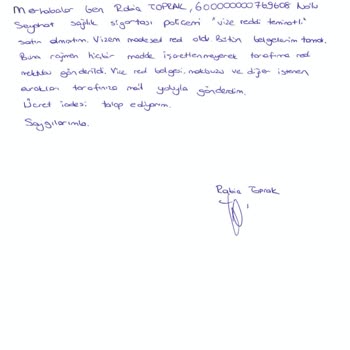 Merhabalar ben Rabia TOPRAK, 600000000769608 No'lu
Seyahat sağlık sigortası poliçemi "vize reddi teminatlı"
satın almıştım. Vizem maalesef red oldu. Bütün belgelerim tamdı.
Buna rağmen hiçbir madde işaretlenmeyerek tarafıma red
mektubu gönderildi. Vize red belgesi, makbuzu ve diğer istenen
evrakları tarafınıza mail yoluyla gönderdim.
Ücret iadesi talep ediyorum.
Saygılarımla.
Rabia Toprak